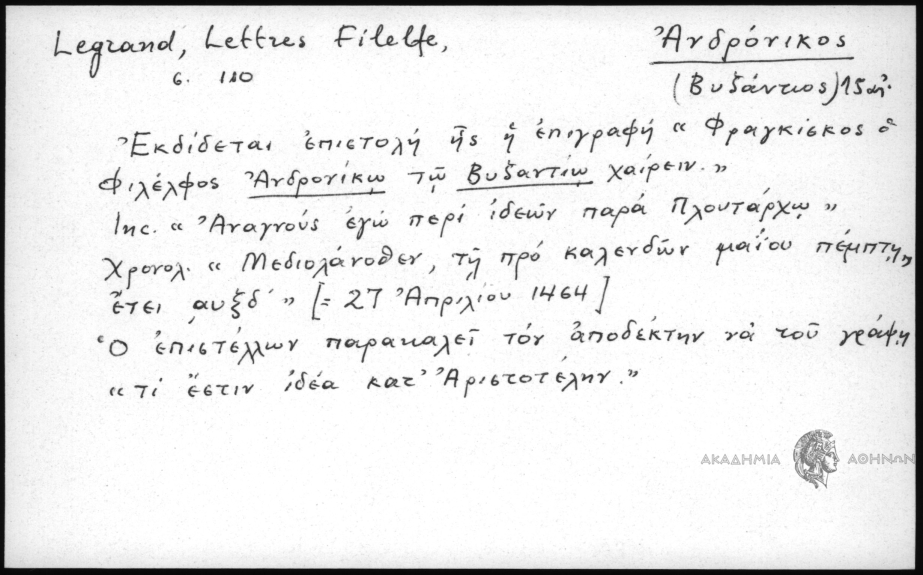 Legrand, Lettres Filelfe,
σ. 110
Ἀνδρόνικος
(Βυζάντιος) 15 αἰ.
Ἐκδίδεται ἐπιστολή ἧς ἡ ἐπιγραφή « Φραγκίσκος ὁ
Φιλέλφος Ἀνδρονίκῳ τῷ Βυζαντίῳ χαίρειν. »
Inc. « Ἀναγνούς ἐγώ περί ἰδεῶν παρά Πλουτάρχῳ »
Χρονολ. « Μεδιολάνοθεν, τῇ πρό καλενδῶν μαΐου πέμπτῃ,,
ἔτει ͵αυξδ´ » [= 27 Ἀπριλίου 1464]
Ὁ ἐπιστέλλων παρακαλεῖ τόν ἀποδέκτην νά τοῦ γράψῃ
« τί ἔστιν ἰδέα κατ' Ἀριστοτέλην. »
ΑΚΑΔΗΜΙΑ ΑΘΗΝΩΝ